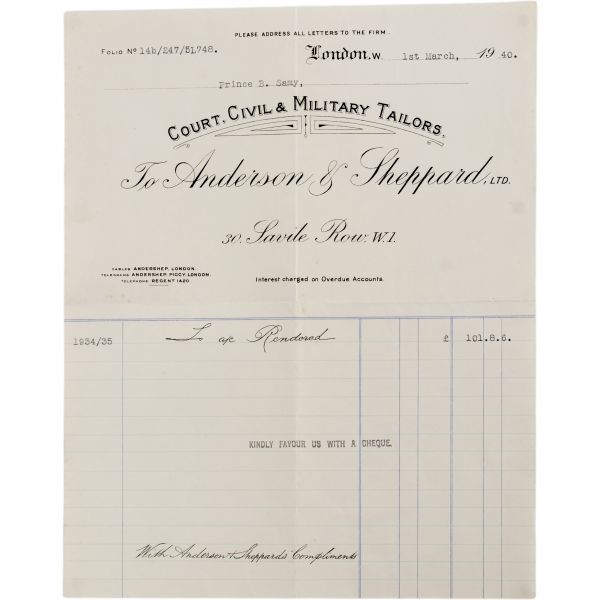 PLEASE ADDRESS ALL LETTERS TO THE FIRM.
FOLIO Nº 14b/247/51,748.
London. W. 1st March, 1940.
Prince B. Samy,
COURT, CIVIL & MILITARY TAILORS,
To Anderson & Sheppard, LTD.
30. Savile Row. W.1.
CABLES ANDERSHEP, LONDON.
TELEGRAMS ANDERSHEP, PICCY, LONDON.
TELEPHONE REGENT 1420.
Interest charged on Overdue Accounts.
1934/35 To a/c Rendered £ 101.8.6.
KINDLY FAVOUR US WITH A CHEQUE.
With Anderson & Sheppards' Compliments